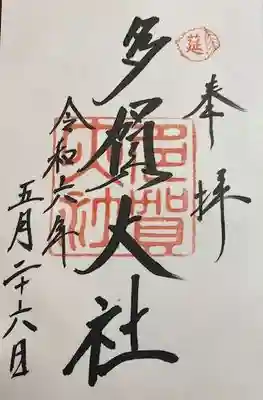 延
奉拝
多賀大社
多賀大社
令和六年
五月二十六日